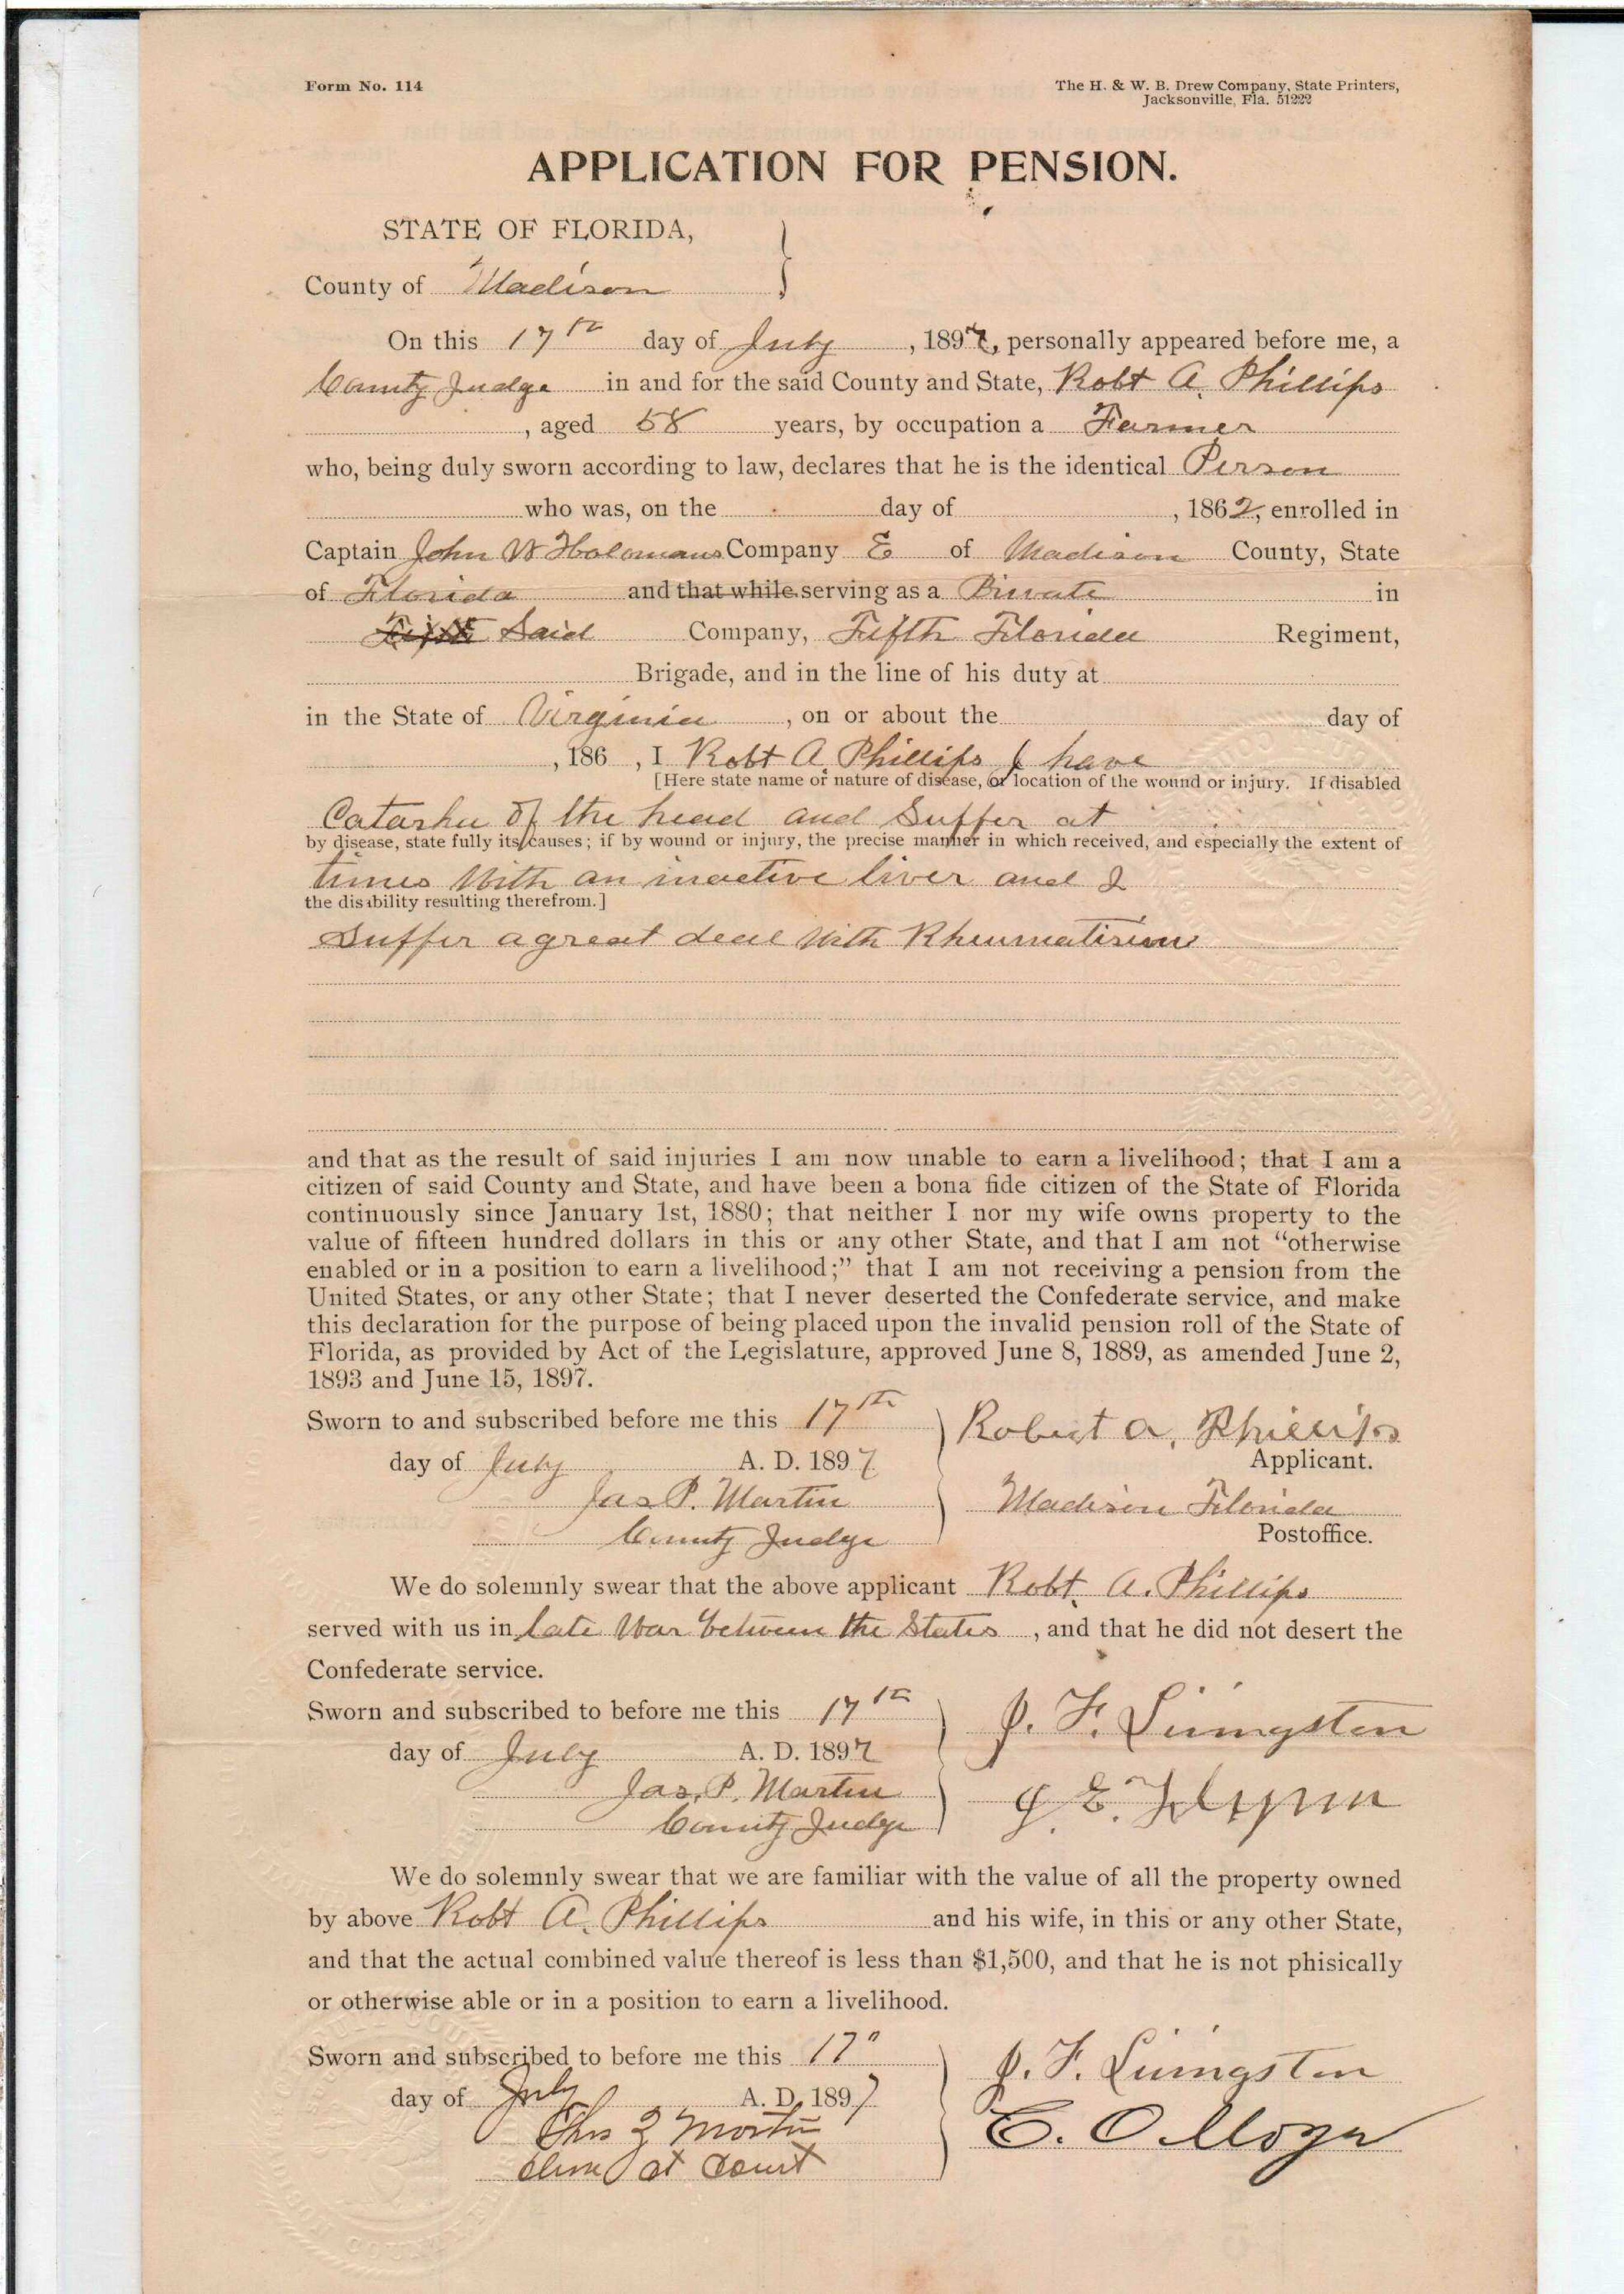 Form No. 114
The H. & W. B. Drew Company, State Printers,
Jacksonville, Fla. 51222
APPLICATION FOR PENSION.
STATE OF FLORIDA,
County of Madison
On this 17th day of July, 1897, personally appeared before me, a
County Judge in and for the said County and State, Robt A. Phillips
, aged 58 years, by occupation a Farmer
who, being duly sworn according to law, declares that he is the identical Person
who was, on the day of , 1862, enrolled in
Captain John W Holomans Company E of Madison County, State
of Florida and that while serving as a Private in
Said Company, Fifth Florida Regiment,
Brigade, and in the line of his duty at
in the State of Virginia, on or about the day of
, 186 , I Robt A. Phillips I have
[Here state name or nature of disease, or location of the wound or injury. If disabled
Catarhu of the head and Suffer at
by disease, state fully its causes; if by wound or injury, the precise manner in which received, and especially the extent of
times With an inactive liver and I
the disability resulting therefrom.]
Suffer a great deal With Rheumatisim
and that as the result of said injuries I am now unable to earn a livelihood; that I am a
citizen of said County and State, and have been a bona fide citizen of the State of Florida
continuously since January 1st, 1880; that neither I nor my wife owns property to the
value of fifteen hundred dollars in this or any other State, and that I am not "otherwise
enabled or in a position to earn a livelihood;" that I am not receiving a pension from the
United States, or any other State; that I never deserted the Confederate service, and make
this declaration for the purpose of being placed upon the invalid pension roll of the State of
Florida, as provided by Act of the Legislature, approved June 8, 1889, as amended June 2,
1893 and June 15, 1897.
Sworn to and subscribed before me this 17th Robert A. Phillips
day of July A. D. 1897 Applicant.
Jas P. Martin Madison Florida
County Judge Postoffice.
We do solemnly swear that the above applicant Robt. A. Phillips
served with us in late War between the States, and that he did not desert the
Confederate service.
Sworn and subscribed to before me this 17th J. F. Livingston
day of July A. D. 1897
Jas. P. Martin J. E. Flynn
County Judge
We do solemnly swear that we are familiar with the value of all the property owned
by above Robt A. Phillips and his wife, in this or any other State,
and that the actual combined value thereof is less than $1,500, and that he is not phisically
or otherwise able or in a position to earn a livelihood.
Sworn and subscribed to before me this 17" J. F. Livingston
day of July A. D. 1897
C. O.
Court